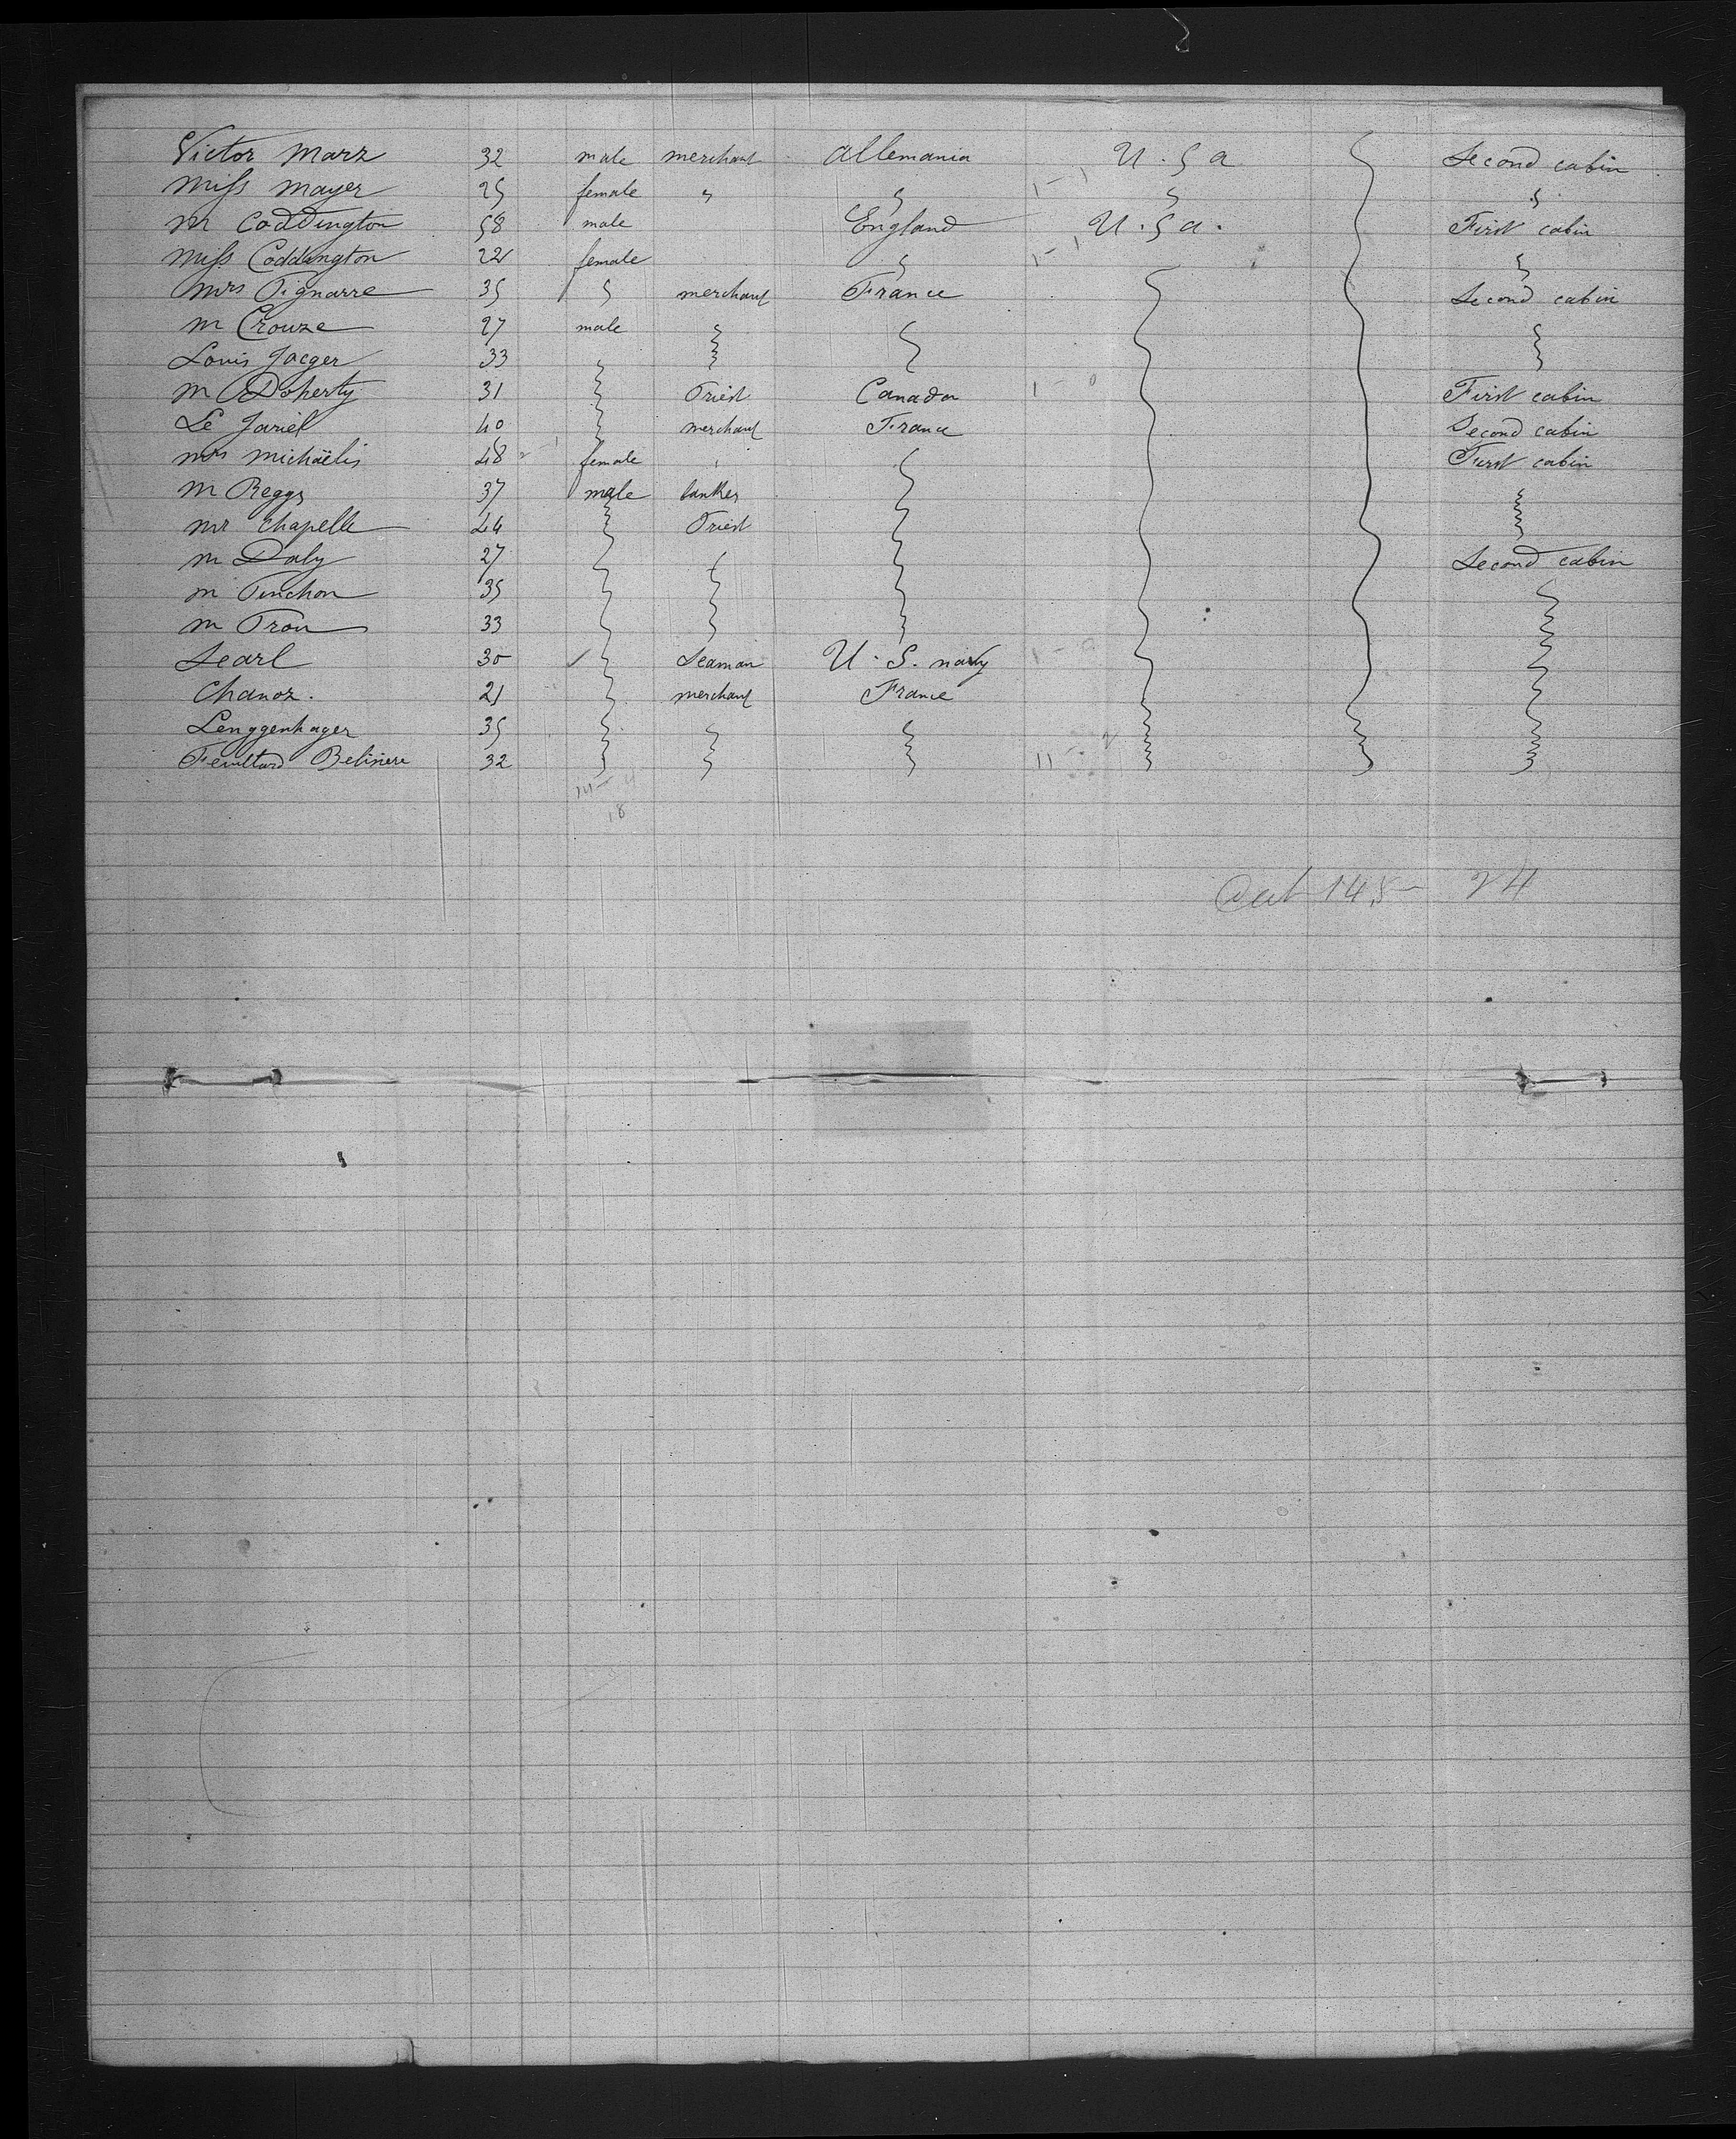 Victor Marx 32 male merchant Allemania U.S.a Second cabin
Miss Mayer 25 female "
M Coddington 58 male England U.S.a. First cabin
Miss Coddington 22 female
Mrs Tignarre 35 merchant France Second cabin
M Crouze 27 male
Louis Jaeger 33
M Doherty 31 Priest Canada First cabin
Le Jariel 40 merchant France Second cabin
Mrs Michaëlis 48 female First cabin
M Beggs 37 male banker
Mr Chapelle 44 Priest
M Daly 27 Second cabin
M Pinchon 35
M Prou 33
Searl 30 Seaman U.S. navy
Chanoz. 21 merchant France
Lenggenhager 35
Feuillard Belinere 32 11
18
145 - 24